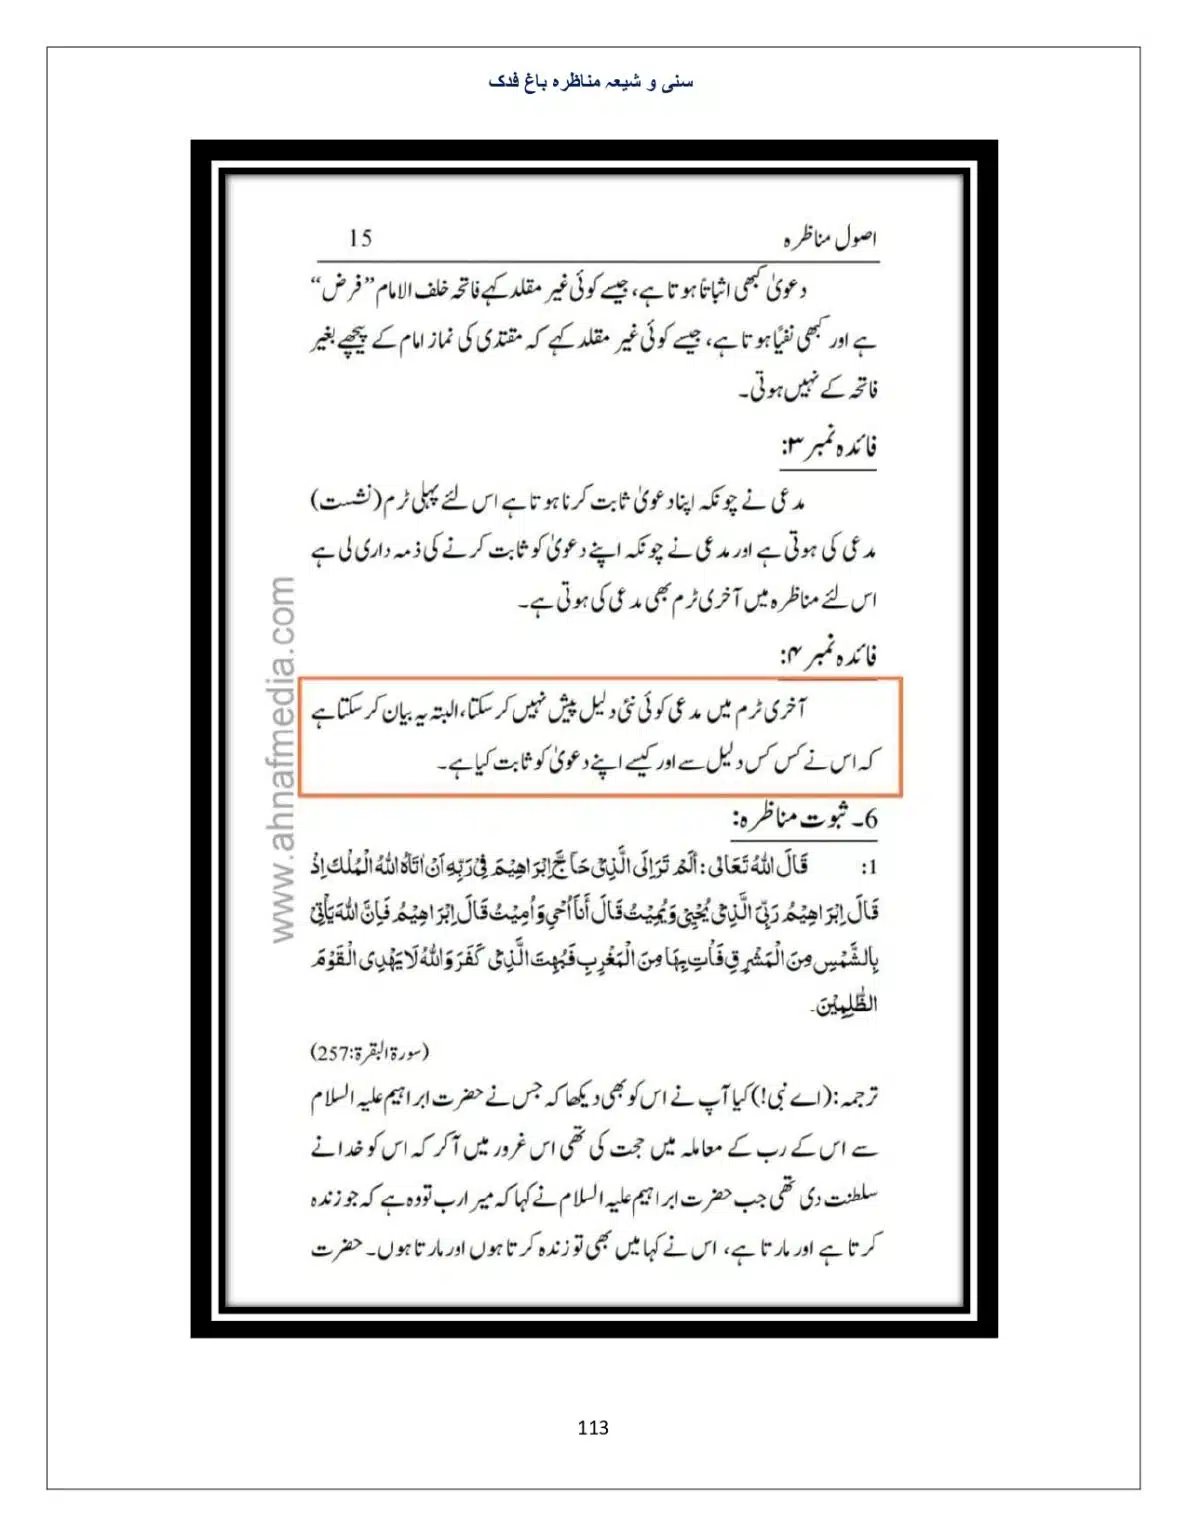 سنی و شیعہ مناظرہ باغ فدک
اصول مناظرہ 15
دعویٰ کبھی اثباتاً ہوتا ہے، جیسے کوئی غیر مقلد کہے فاتحہ خلف الامام ”فرض“
ہے اور کبھی نفیًا ہوتا ہے، جیسے کوئی غیر مقلد کہے کہ مقتدی کی نماز امام کے پیچھے بغیر
فاتحہ کے نہیں ہوتی۔
فائدہ نمبر ۳:
مدعی نے چونکہ اپنا دعویٰ ثابت کرنا ہوتا ہے اس لئے پہلی ٹرم (نشست)
مدعی کی ہوتی ہے اور مدعی نے چونکہ اپنے دعویٰ کو ثابت کرنے کی ذمہ داری لی ہے
اس لئے مناظرہ میں آخری ٹرم بھی مدعی کی ہوتی ہے۔
فائدہ نمبر ۴:
آخری ٹرم میں مدعی کوئی نئی دلیل پیش نہیں کر سکتا، البتہ یہ بیان کر سکتا ہے
کہ اس نے کس کس دلیل سے اور کیسے اپنے دعویٰ کو ثابت کیا ہے۔
6۔ ثبوت مناظرہ:
1: قَالَ اللهُ تَعَالٰی: اَلَمْ تَرَ اِلَی الَّذِیْ حَاجَّ اِبْرَاهِیْمَ فِیْ رَبِّهٖ اَنْ اٰتَاهُ اللهُ الْمُلْكَ اِذْ
قَالَ اِبْرَاهِیْمُ رَبِّیَ الَّذِیْ یُحْیِیْ وَیُمِیْتُ قَالَ أَنَا اُحْیِ وَاُمِیْتُ قَالَ اِبْرَاهِیْمُ فَاِنَّ اللهَ یَأْتِیْ
بِالشَّمْسِ مِنَ الْمَشْرِقِ فَاْتِ بِهَا مِنَ الْمَغْرِبِ فَبُهِتَ الَّذِیْ كَفَرَ وَاللهُ لَا یَهْدِی الْقَوْمَ
الظّٰلِمِیْنَ۔
(سورۃ البقرۃ:257)
ترجمہ: (اے نبی!) کیا آپ نے اس کو بھی دیکھا کہ جس نے حضرت ابراہیم علیہ السلام
سے اس کے رب کے معاملہ میں حجت کی تھی اس غرور میں آکر کہ اس کو خدا نے
سلطنت دی تھی جب حضرت ابراہیم علیہ السلام نے کہا کہ میرا رب تو وہ ہے کہ جو زندہ
کرتا ہے اور مارتا ہے، اس نے کہا میں بھی تو زندہ کرتا ہوں اور مارتا ہوں۔ حضرت
www.ahnafmedia.com
113